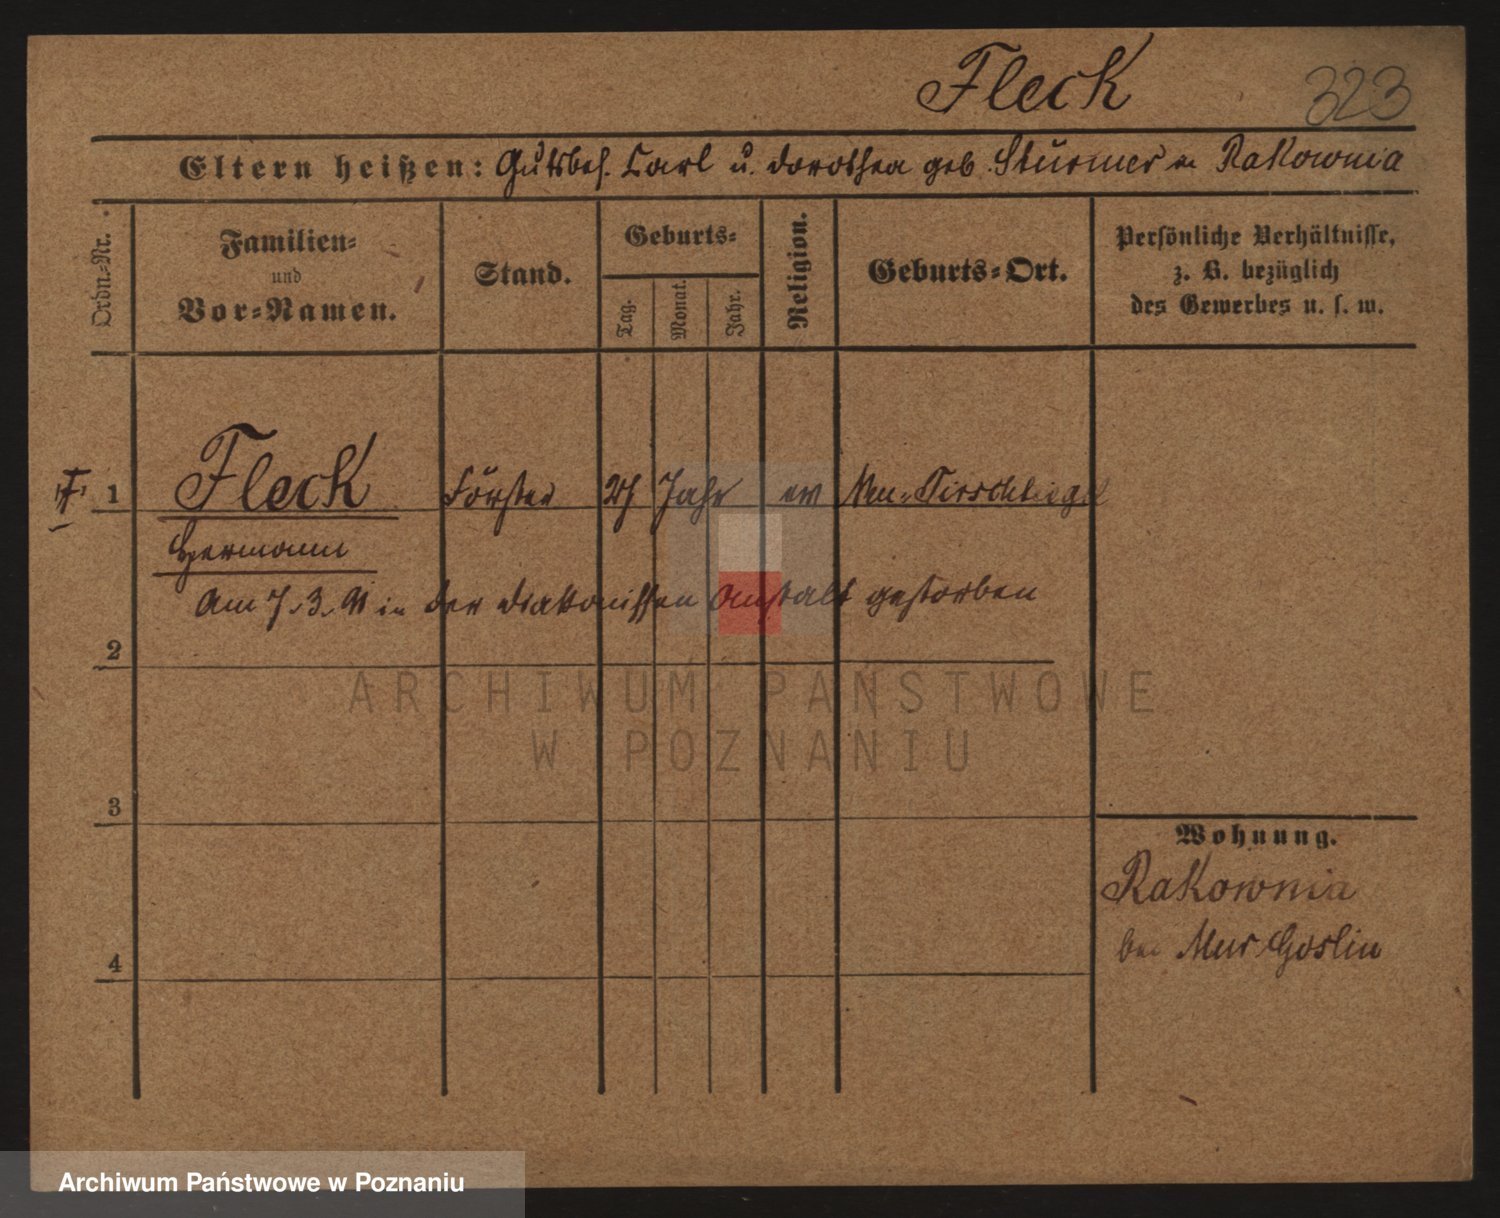 Fleck 323
Eltern heißen: Gutsbes. Carl u. Dorothea geb. Stürmer in Rakownia
Ordn.-Nr.
Familien-
und
Vor-Namen.
Stand.
Geburts-
Tag.
Monat.
Jahr.
Religion.
Geburts-Ort.
Persönliche Verhältnisse,
z. B. bezüglich
des Gewerbes u. s. w.
1 Fleck Förster Jahr ev Neu-Tirschtiegel
Hermann
Am 7.3.91 in der Diakonissen Anstalt gestorben
2
ARCHIWUM PAŃSTWOWE
W POZNANIU
3
Wohnung.
Rakownia
bei Mur Goslin
4
Archiwum Państwowe w Poznaniu